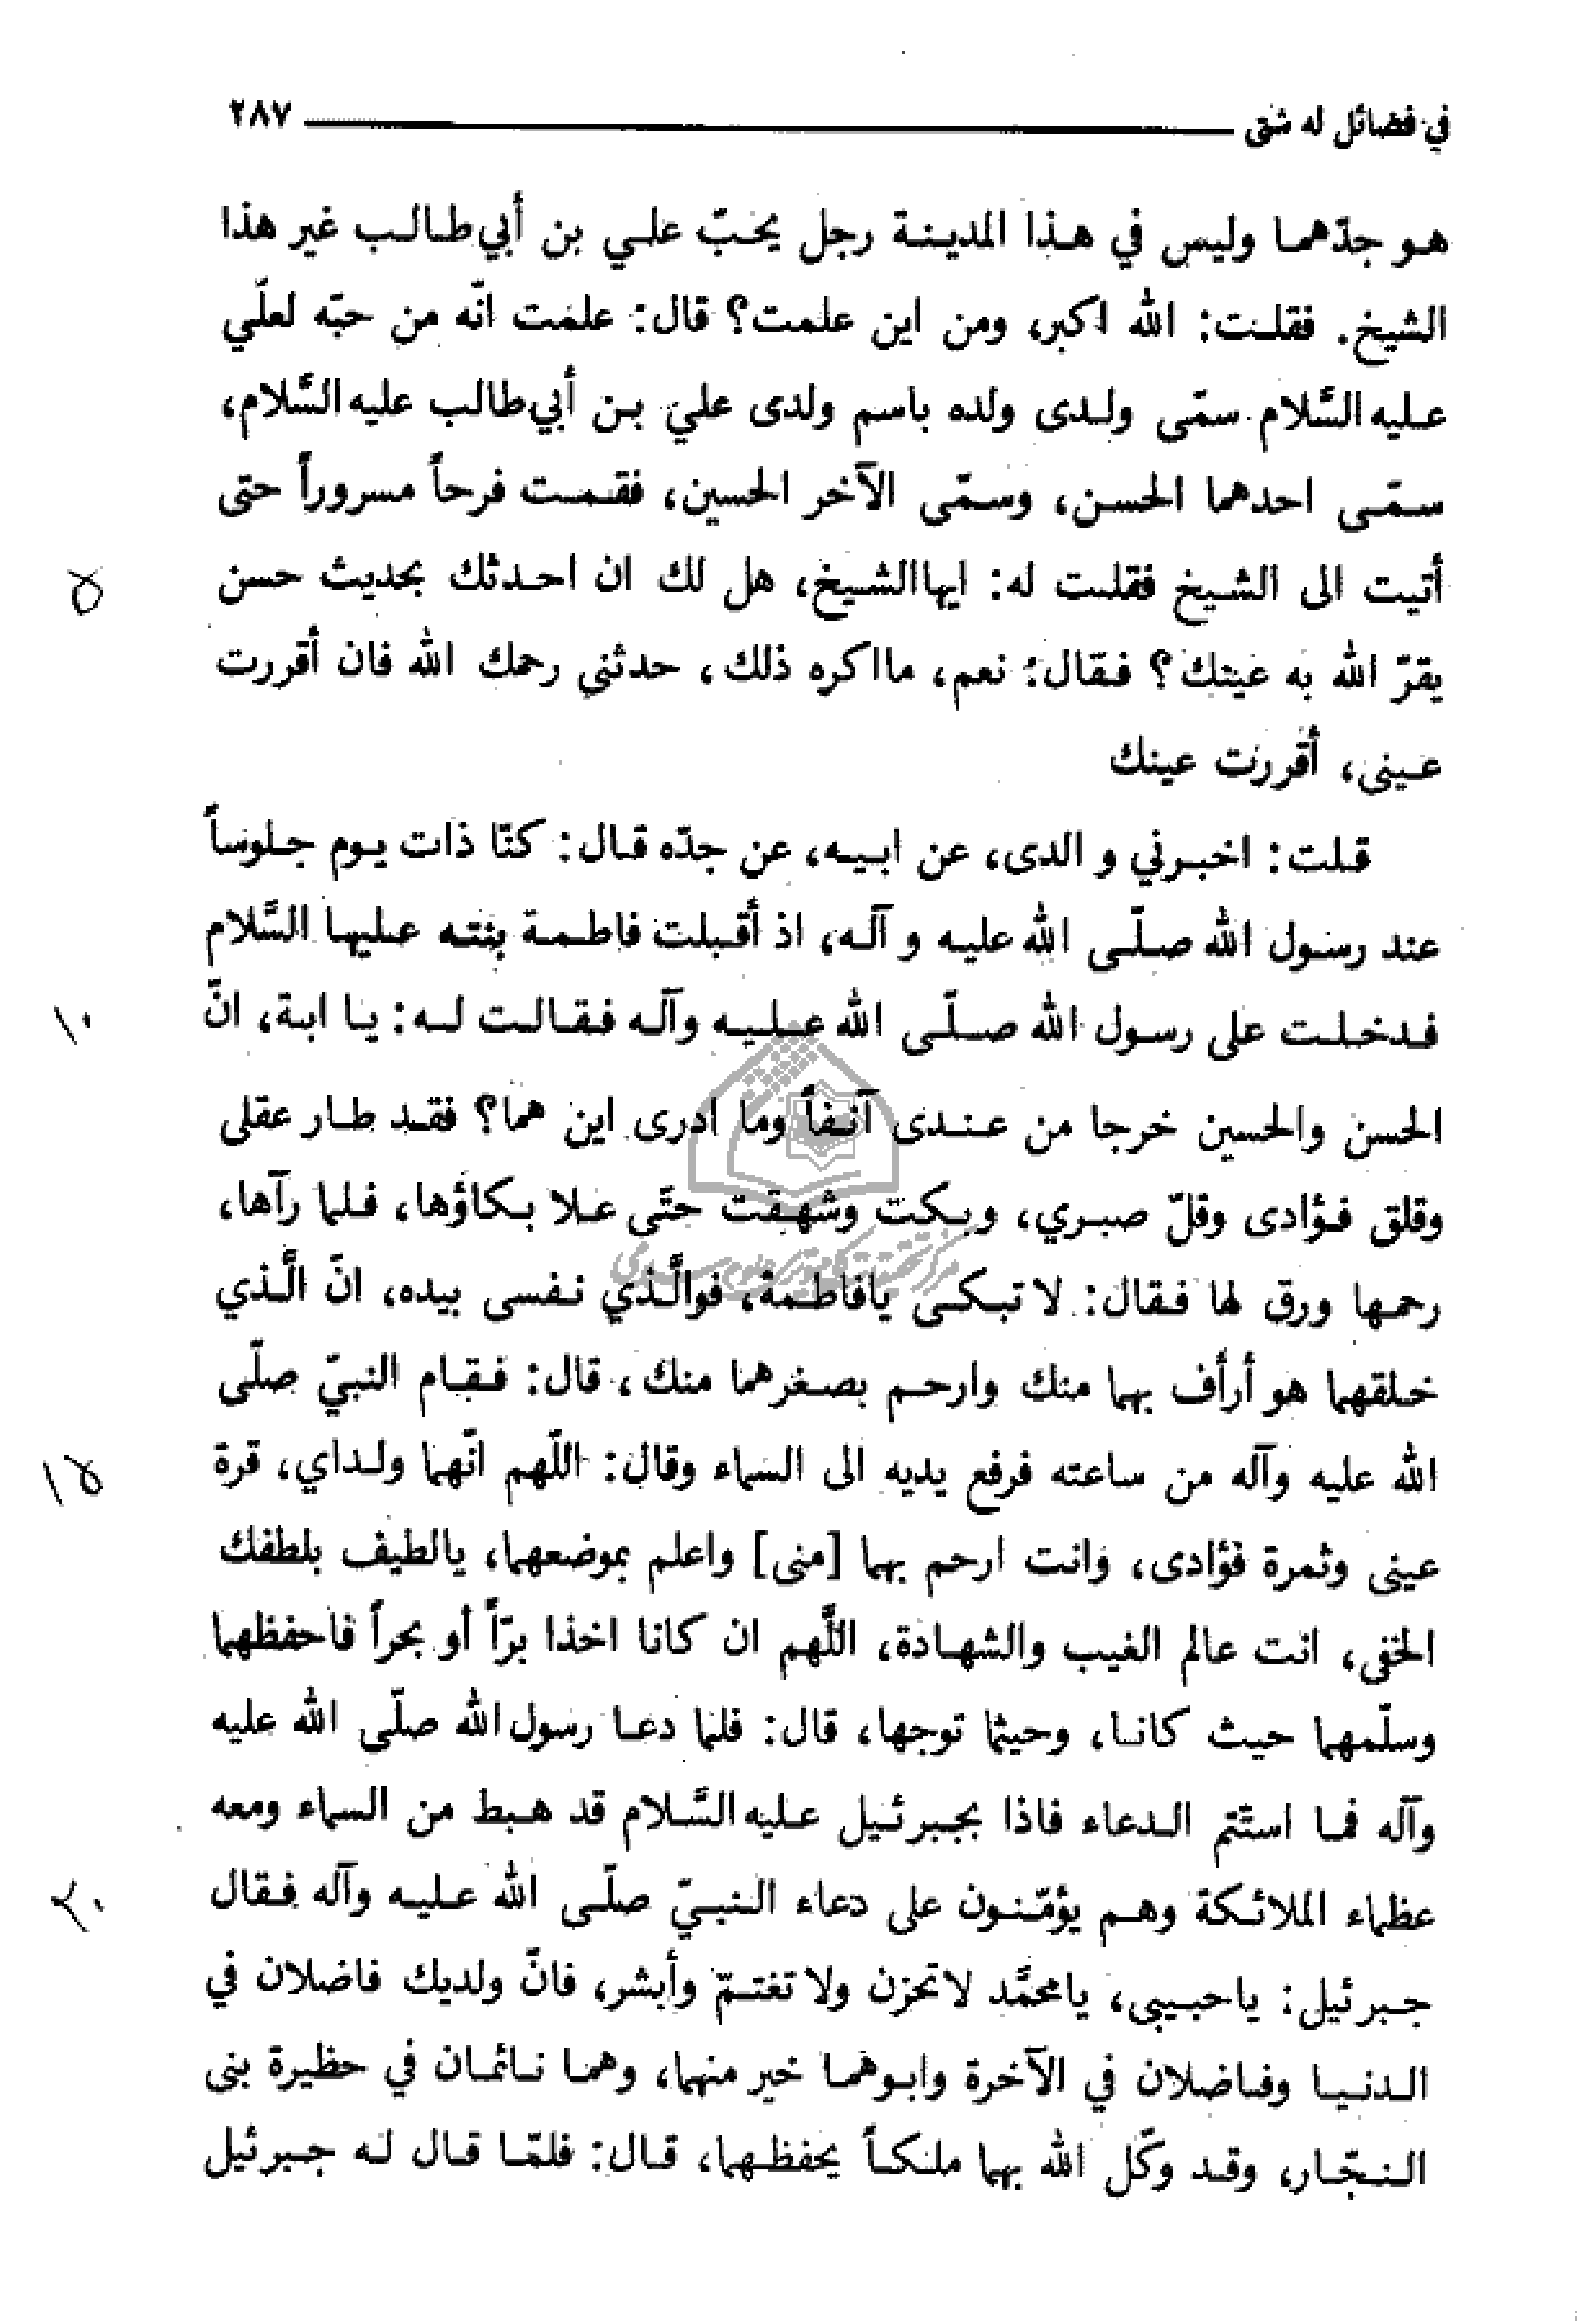 في فضائل له شتى ٢٨٧
هو جدّهما وليس في هذا المدينة رجل يحبّ علي بن أبي طالب غير هذا
الشيخ. فقلت: الله اكبر، ومن اين علمت؟ قال: علمت انّه من حبّه لعلّي
عليه السَّلام سمّى ولدى ولده باسم ولدى علي بن أبي طالب عليه السَّلام،
سمّى احدهما الحسن، وسمّى الآخر الحسين، فقمت فرحاً مسروراً حتى
أتيت الى الشيخ فقلت له: ايها الشيخ، هل لك ان احدثك بحديث حسن
٥
يقرّ الله به عينك؟ فقال: نعم، ما اكره ذلك، حدثني رحمك الله فان أقررت
عينى، أقررت عينك
قلت: اخبرني و الدى، عن ابيه، عن جدّه قال: كنّا ذات يوم جلوساً
عند رسول الله صلّى الله عليه و آله، اذ أقبلت فاطمة بنته عليها السَّلام
فدخلت على رسول الله صلّى الله عليه وآله فقالت له: يا ابة، انّ
١٠
الحسن والحسين خرجا من عندى آنفاً وما ادرى اين هما؟ فقد طار عقلى
وقلق فؤادى وقلّ صبري، وبكت وشهقت حتّى علا بكاؤها، فلما رآها،
رحمها ورق لها فقال: لا تبكى يا فاطمة، فوالَّذي نفسى بيده، انّ الَّذي
خلقهما هو أرأف بهما منك وارحم بصغرهما منك، قال: فقام النبيّ صلّى
الله عليه وآله من ساعته فرفع يديه الى السماء وقال: اللّهم انّهما ولداي، قرة
١٥
عينى وثمرة فؤادى، وانت ارحم بهما [منى] واعلم بموضعهما، يالطيف بلطفك
الخفى، انت عالم الغيب والشهادة، اللَّهم ان كانا اخذا برّاً أو بحراً فاحفظهما
وسلّمهما حيث كانا، وحيثما توجها، قال: فلما دعا رسول الله صلّى الله عليه
وآله فما استتم الدعاء فاذا بجبرئيل عليه السَّلام قد هبط من السماء ومعه
عظماء الملائكة وهم يؤمّنون على دعاء النبيّ صلّى الله عليه وآله فقال
٢٠
جبرئيل: ياحبيبى، يامحمَّد لاتحزن ولاتغتمّ وأبشر، فانّ ولديك فاضلان في
الدنيا وفاضلان في الآخرة وابوهما خير منهما، وهما نائمان في حظيرة بنى
النجّار، وقد وكّل الله بهما ملكاً يحفظهما، قال: فلمّا قال له جبرئيل